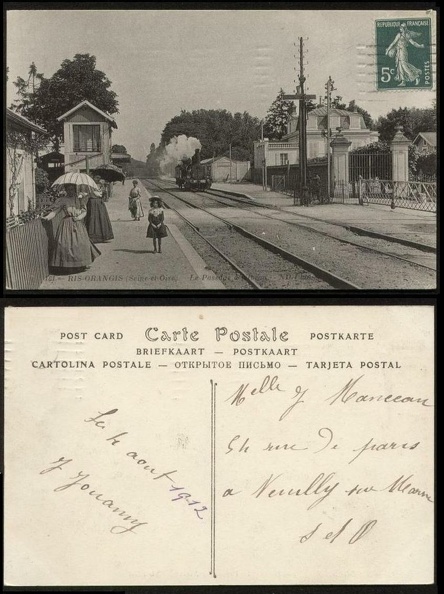 RÉPUBLIQUE FRANÇAISE
5c
POSTES
RIS-ORANGIS (Seine-et-Oise) Le Passage à Niveau ND
Carte Postale
POST CARD POSTKARTE
BRIEFKAART — POSTKAART
CARTOLINA POSTALE — ОТКРЫТОЕ ПИСЬМО — TARJETA POSTAL
Le 4 aout 1912
J Jouanny
Melle J Manceau
54 rue de paris
a Neuilly sur Marne
S et O